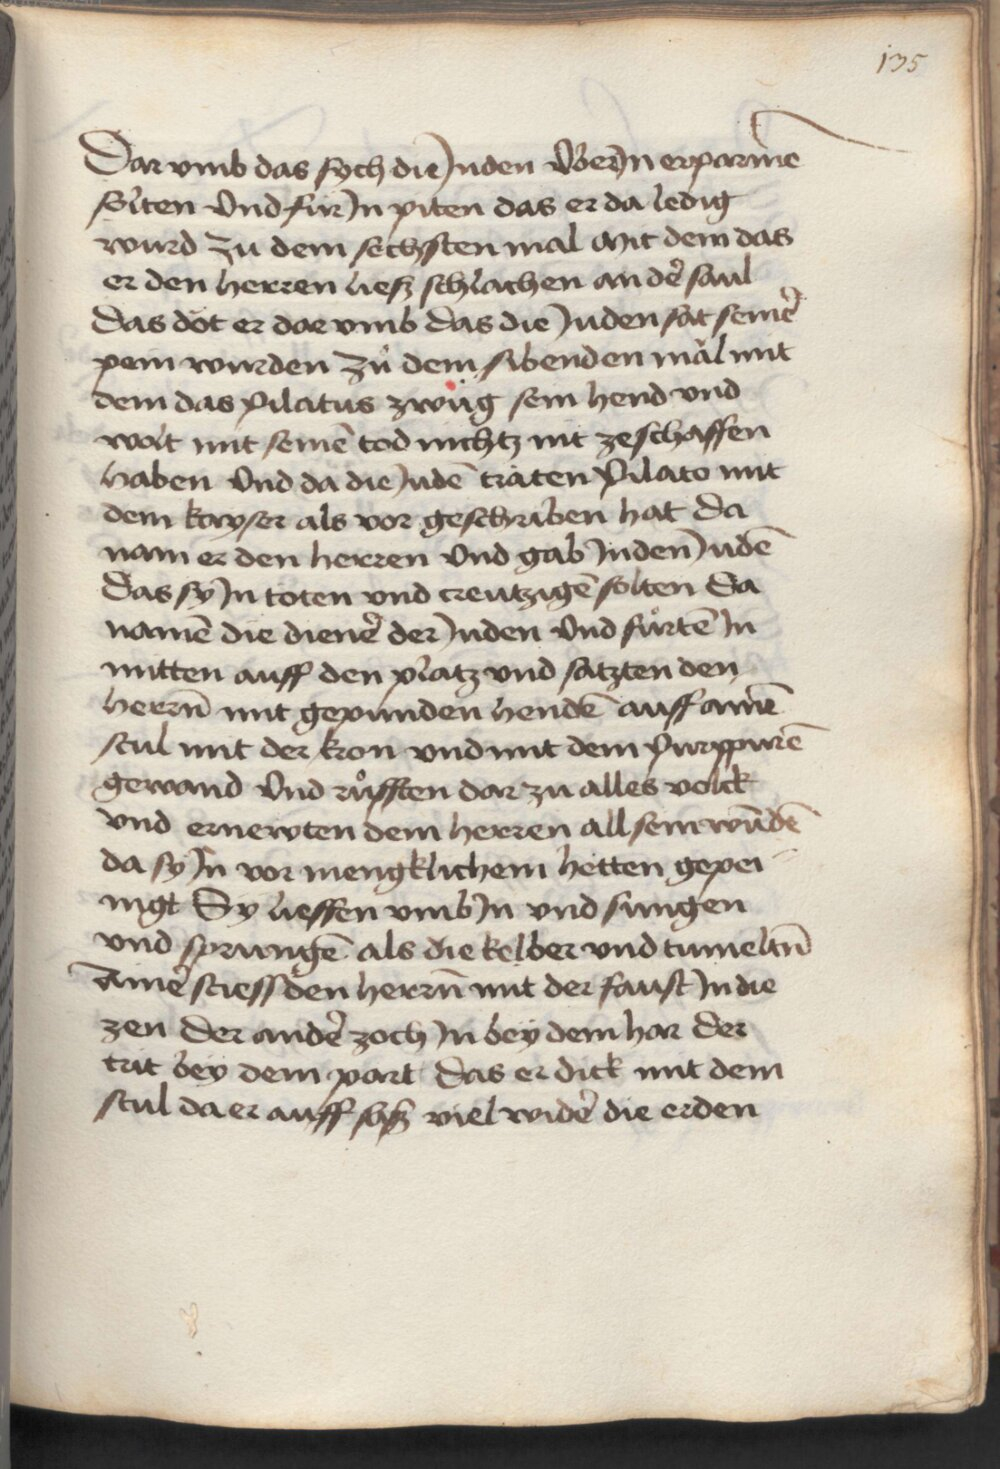 135
Dar vmb das sych die Juden vber Jn erparmē
solten Vnd für Jn piten das er da ledig
wurd Zu dem sechsten mal Mit dem das
er den herren liesz schlachen an der̄ saul
Das dot er dar vmb das die Juden sat seiner̄
pein wurden Zů dem sibenden mal mit
dem das Pilatus zwůg sein hend vnd
wolt mit seinē tod nichtz nit ze schaffen
haben Vnd da die Judē traten Pilato mit
dem kayser als vor geschriben hat Da
nam er den herren Vnd gab Jn den Judē
Das sy Jn toten vnd creutzigē solten Da
namē die diener̄ der Juden Vnd fůrtē Jn
mitten auff den platz vnd satzten den
herrn̄ mit gepunden hendē auff ainē
stul mit der kron vnd mit dem Purppurē
gewand Vnd růfften dar zu alles volck
vnd ernewten dem herren all sein wūdē
da sy Jn vor mengklichem hetten gepei
nigt Sy lieffen vmb Jn vnd sungen
vnd sprungē als die kelber vnd tumeltn̄
Ainer̄ stiess den herrn̄ mit der faust Jn die
zen Der ander̄ zoch Jn bey dem har Der
trit bey dem part Das er dick mit dem
stul da er auff sasz viel wider̄ die erden